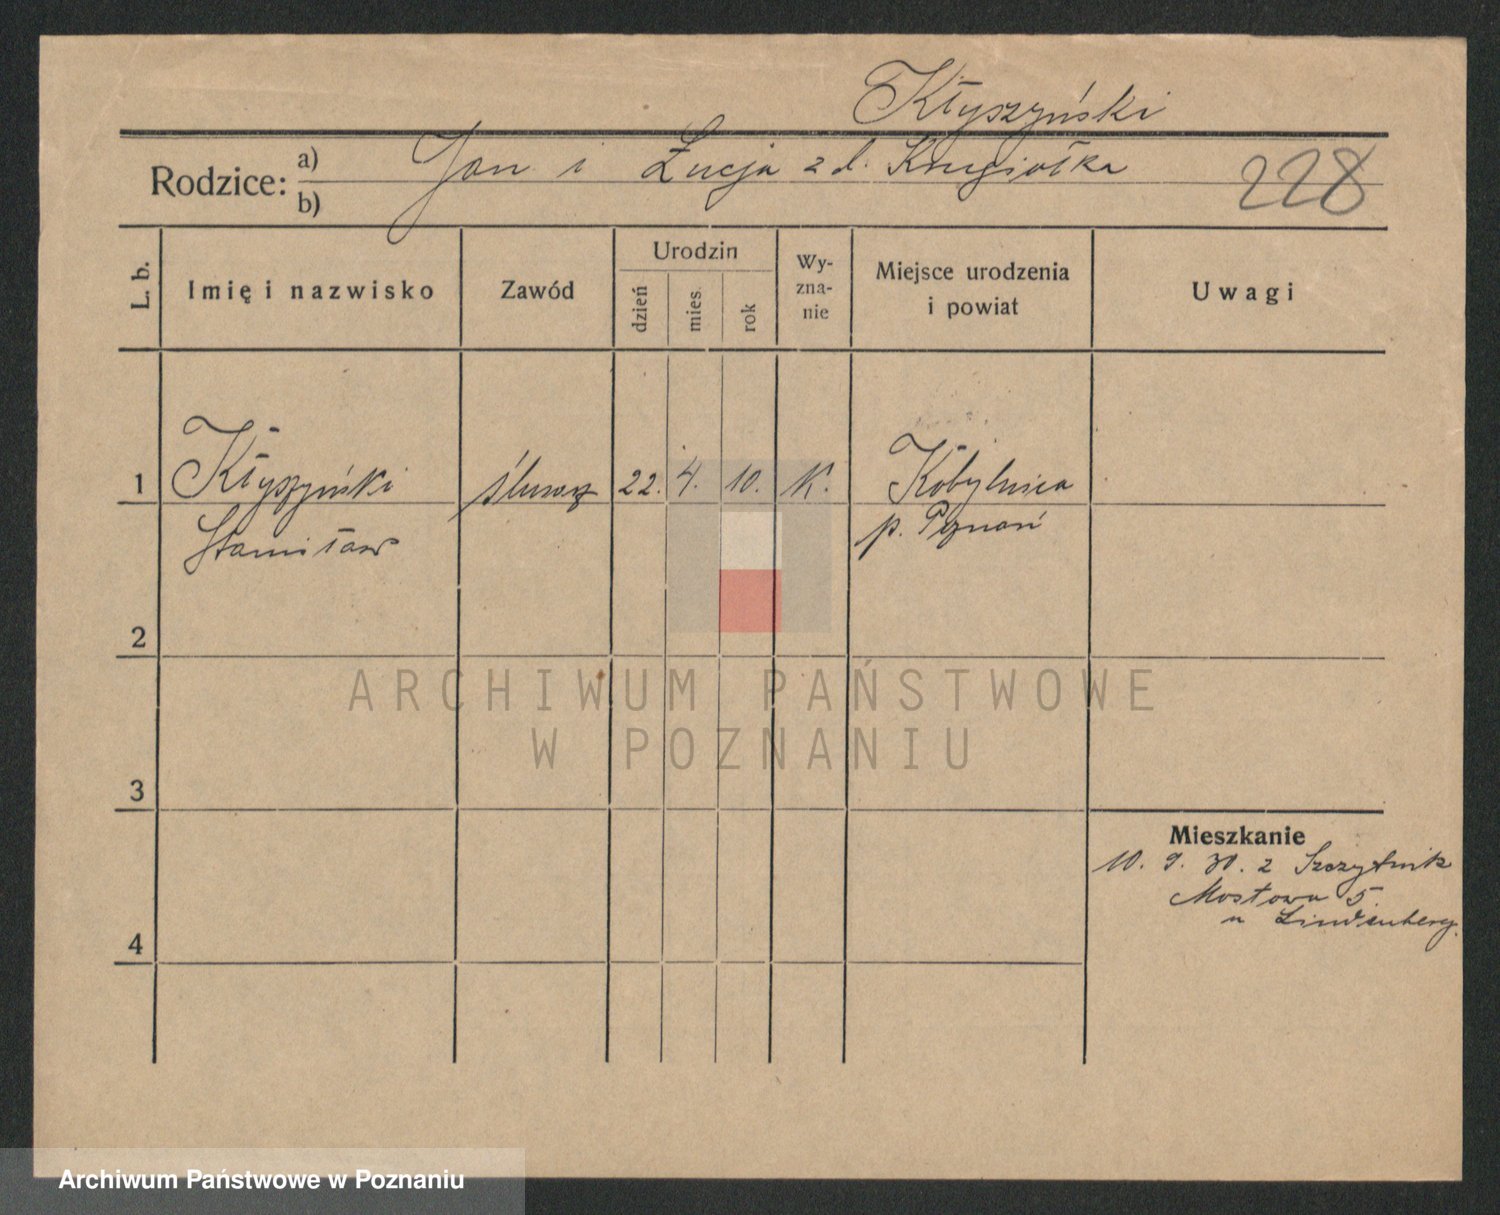 Kłyszyński
Rodzice: a) b) Jan i Łucja z d. Krugiołka
228
L. b. Imię i nazwisko Zawód Urodzin dzień mies. rok Wy-zna-nie Miejsce urodzenia i powiat Uwagi
1 Kłyszyński ślusarz 22. 4. 10. K. Kobylnica
Stanisław p. Poznań
2
ARCHIWUM PAŃSTWOWE
W POZNANIU
3
Mieszkanie
10. 9. 30. z Szczytnik
Mostowa 5.
u Lindenberg.
4
Archiwum Państwowe w Poznaniu